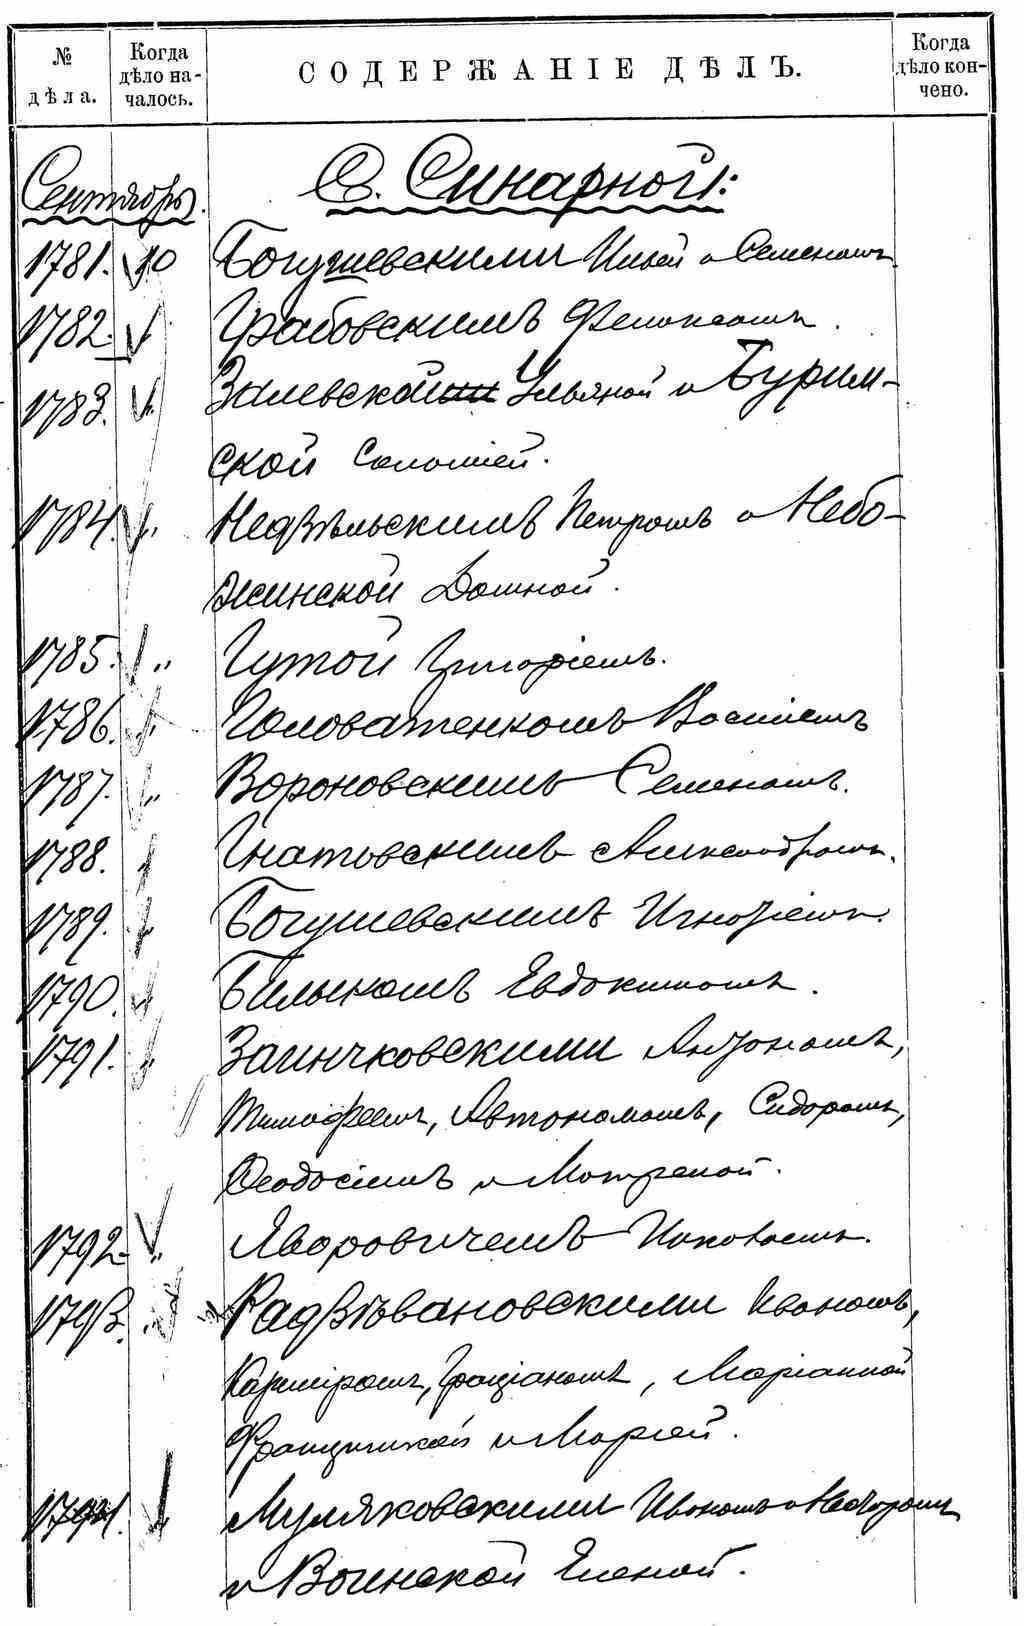 № дѣла.
Когда дѣло началось.
СОДЕРЖАНІЕ ДѢЛЪ.
Когда дѣло кончено.
Сентябрь. С. Синарной:
1781. 10 Богушевскими Ильей и Семеномъ
1782. Грабовскимъ Феликсомъ.
1783. " Залевской Ульяной и Бурим-
ской Саломіей.
1784. " Недзѣльскимъ Петромъ и Небо-
жинской Домной.
1785. " Гутой Григоріемъ.
1786. " Головатенкомъ Василіемъ
1787. " Вороновскимъ Семеномъ.
1788. " Гнатовскимъ Александромъ.
1789. " Богушевскимъ Игнатіемъ.
1790. " Билыкомъ Евдокимомъ.
1791. " Заинчковскими Антономъ,
Тимофеемъ, Автономомъ, Сидоромъ,
Феодосіемъ и Мотреной.
1792. " Яворовичемъ Николаемъ.
1793. " Радзѣвановскими Иваномъ,
Каzиміромъ, Граціаномъ, Маріанной
Францишкой и Маріей.
1794. " Муляковскими Иваномъ и Несторомъ
и Воинской Еленой.